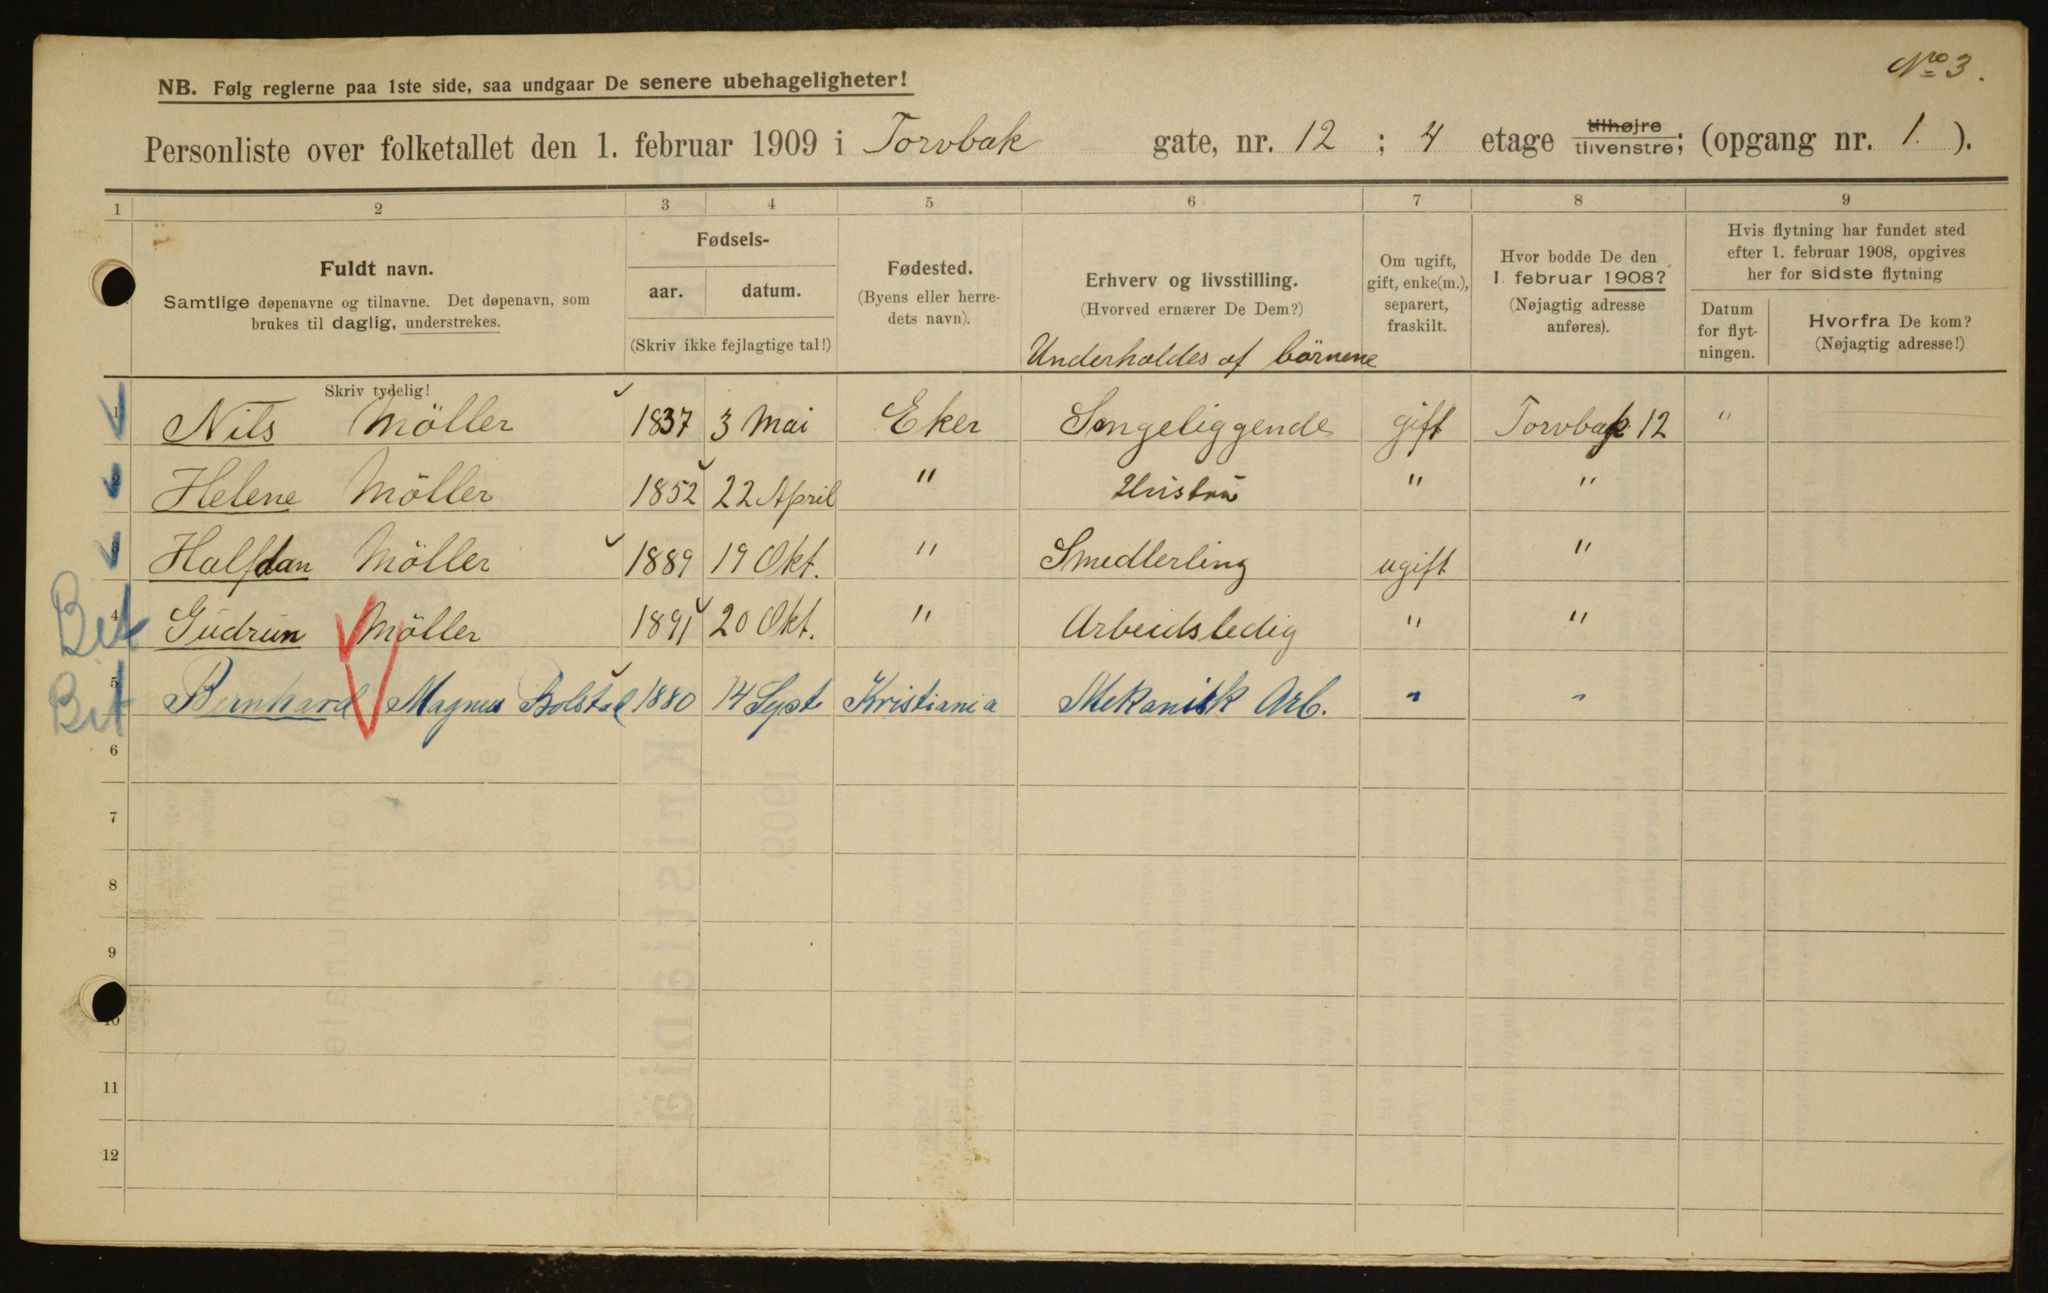 Nro 3.
NB. Følg reglerne paa 1ste side, saa undgaar De senere ubehageligheter!
Personliste over folketallet den 1. februar 1909 i Torvbak gate, nr. 12; 4 etage tilhøjre tilvenstre; (opgang nr. 1).
1 2 3 4 5 6 7 8 9
Fuldt navn.
Samtlige døpenavne og tilnavne. Det døpenavn, som
brukes til daglig, understrekes.
Skriv tydelig!
Fødsels-
aar. datum.
(Skriv ikke fejlagtige tal!)
Fødested.
(Byens eller herre-
dets navn).
Erhverv og livsstilling.
(Hvorved ernærer De Dem?)
Underholdes af börnene
Om ugift,
gift, enke(m.),
separert,
fraskilt.
Hvor bodde De den
1. februar 1908?
(Nøjagtig adresse
anføres).
Hvis flytning har fundet sted
efter 1. februar 1908, opgives
her for sidste flytning
Datum
for flyt-
ningen.
Hvorfra De kom?
(Nøjagtig adresse!)
1 Nils Möller 1837 3 Mai Eker Sengeliggende gift Torvbak 12 "
2 Helene Möller 1852 22 April " Hustru " "
3 Halfdan Möller 1889 19 Okt. " Smedlerling ugift "
Bet 4 Gudrun Möller 1891 20 Okt. " Arbeidsledig " "
Bet 5 Bernhard Magnus Bolstad 1880 14 Sept Kristiania Mekanisk Arb. " "
6
7
8
9
10
11
12